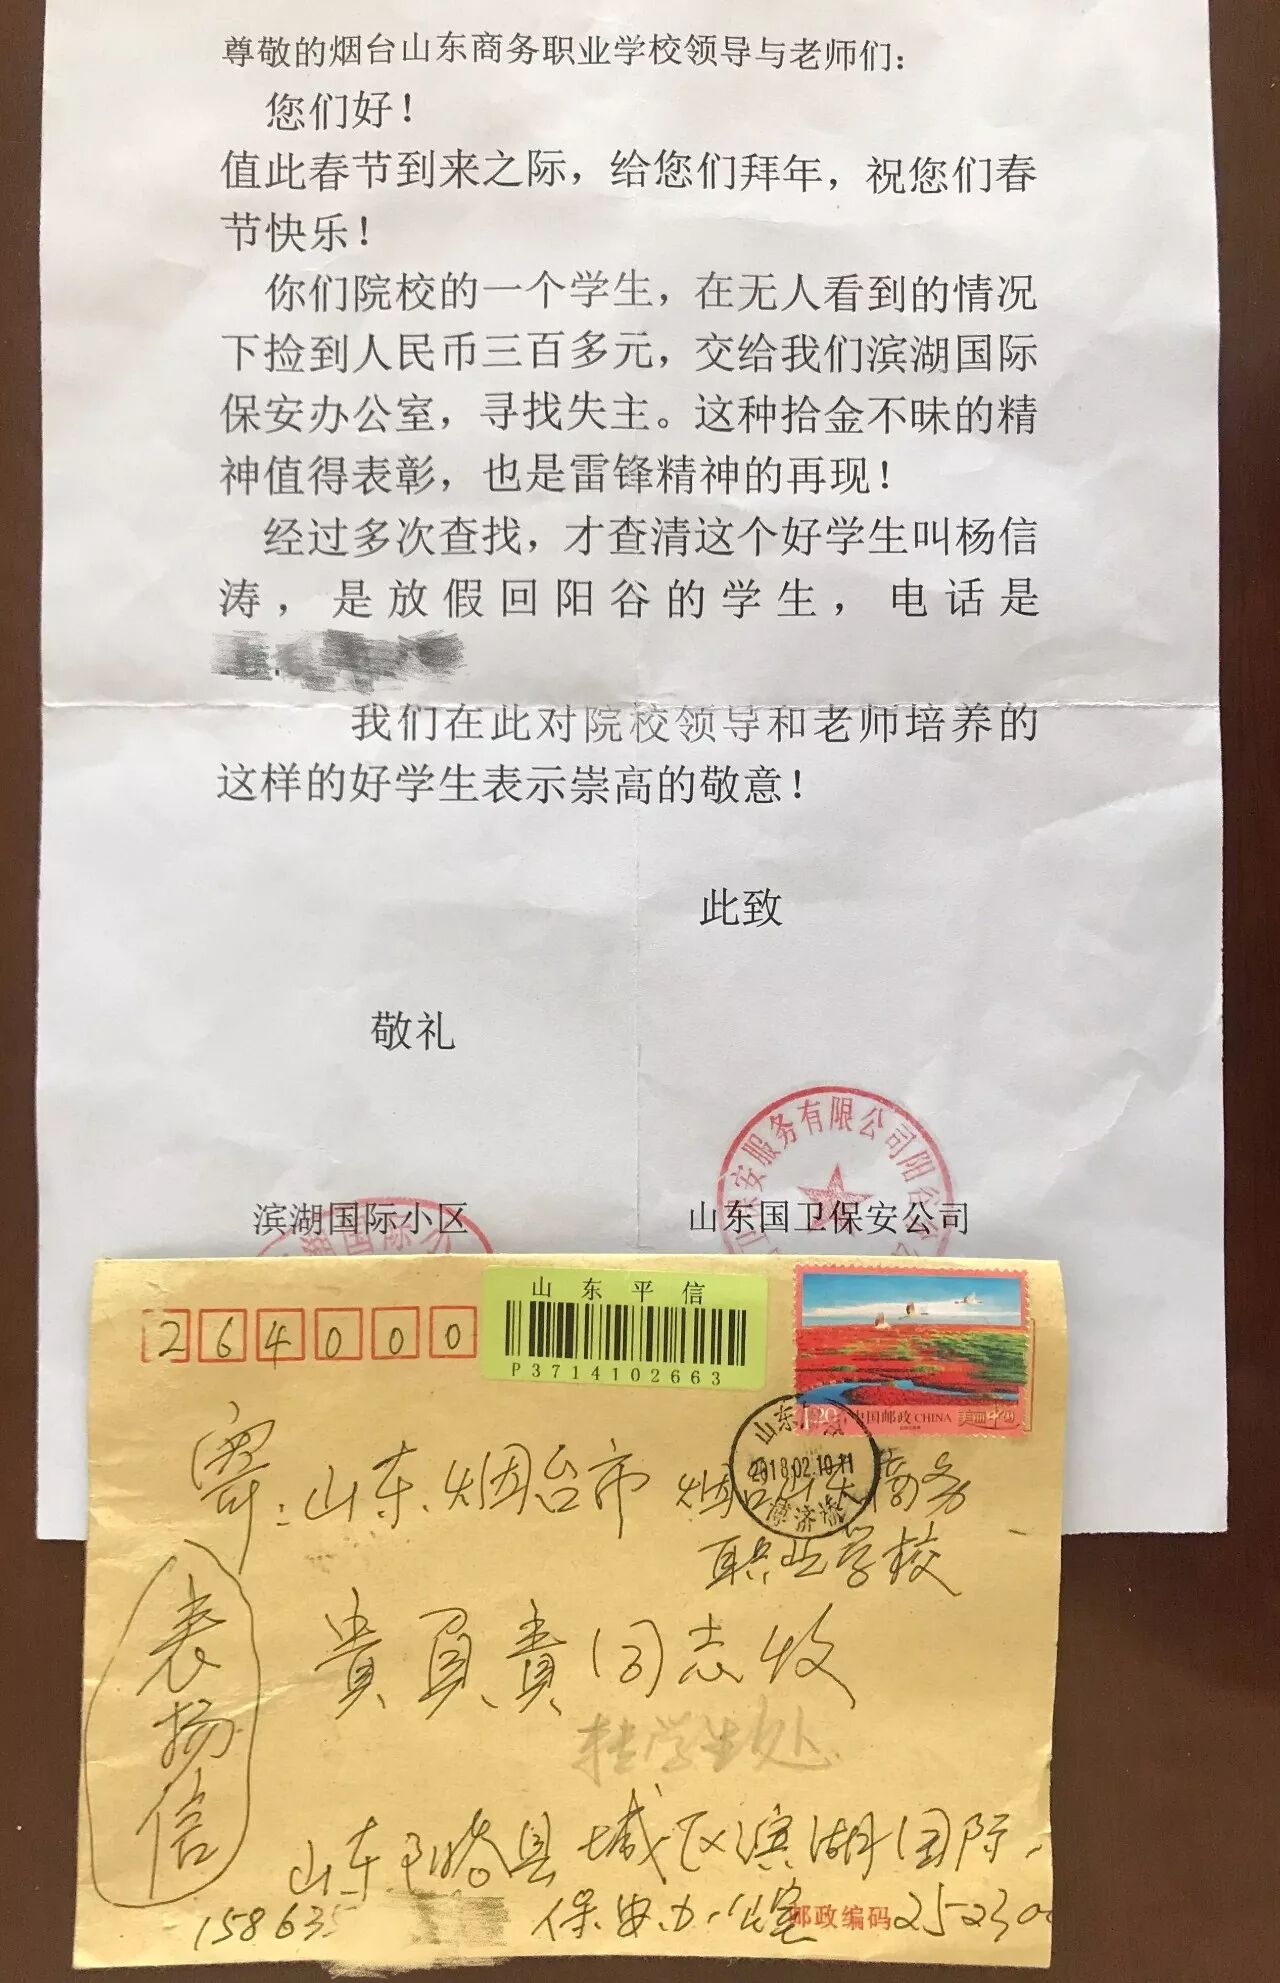 尊敬的烟台山东商务职业学校领导与老师们：
您们好！
值此春节到来之际，给您们拜年，祝您们春
节快乐！
你们院校的一个学生，在无人看到的情况
下捡到人民币三百多元，交给我们滨湖国际
保安办公室，寻找失主。这种拾金不昧的精
神值得表彰，也是雷锋精神的再现！
经过多次查找，才查清这个好学生叫杨信
涛，是放假回阳谷的学生，电话是
我们在此对院校领导和老师培养的
这样的好学生表示崇高的敬意！
此致
敬礼
卫保安服务有限公司阳谷
滨湖国际小区 山东国卫保安公司
湖国际小
山东平信
264000
P3714102663
1.20 中国邮政 CHINA 美丽中国
山东
2018.02.10.11
寄：山东烟台市 烟台山东商务
职业学校
贵负责同志收
转学生处
表扬信
山东阳谷县城区滨湖国际
15863 保安办公室 邮政编码252300